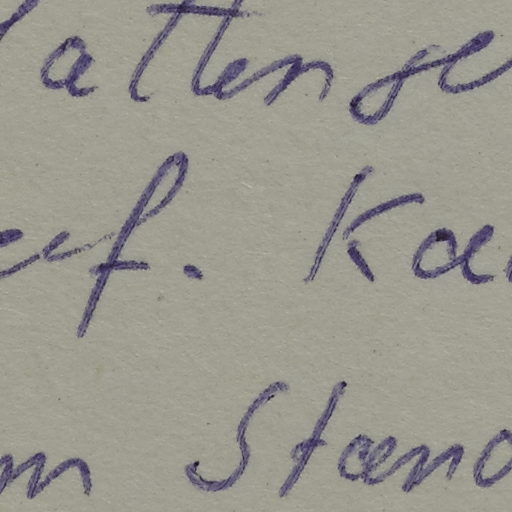 attense
euf. Ka
m Stand